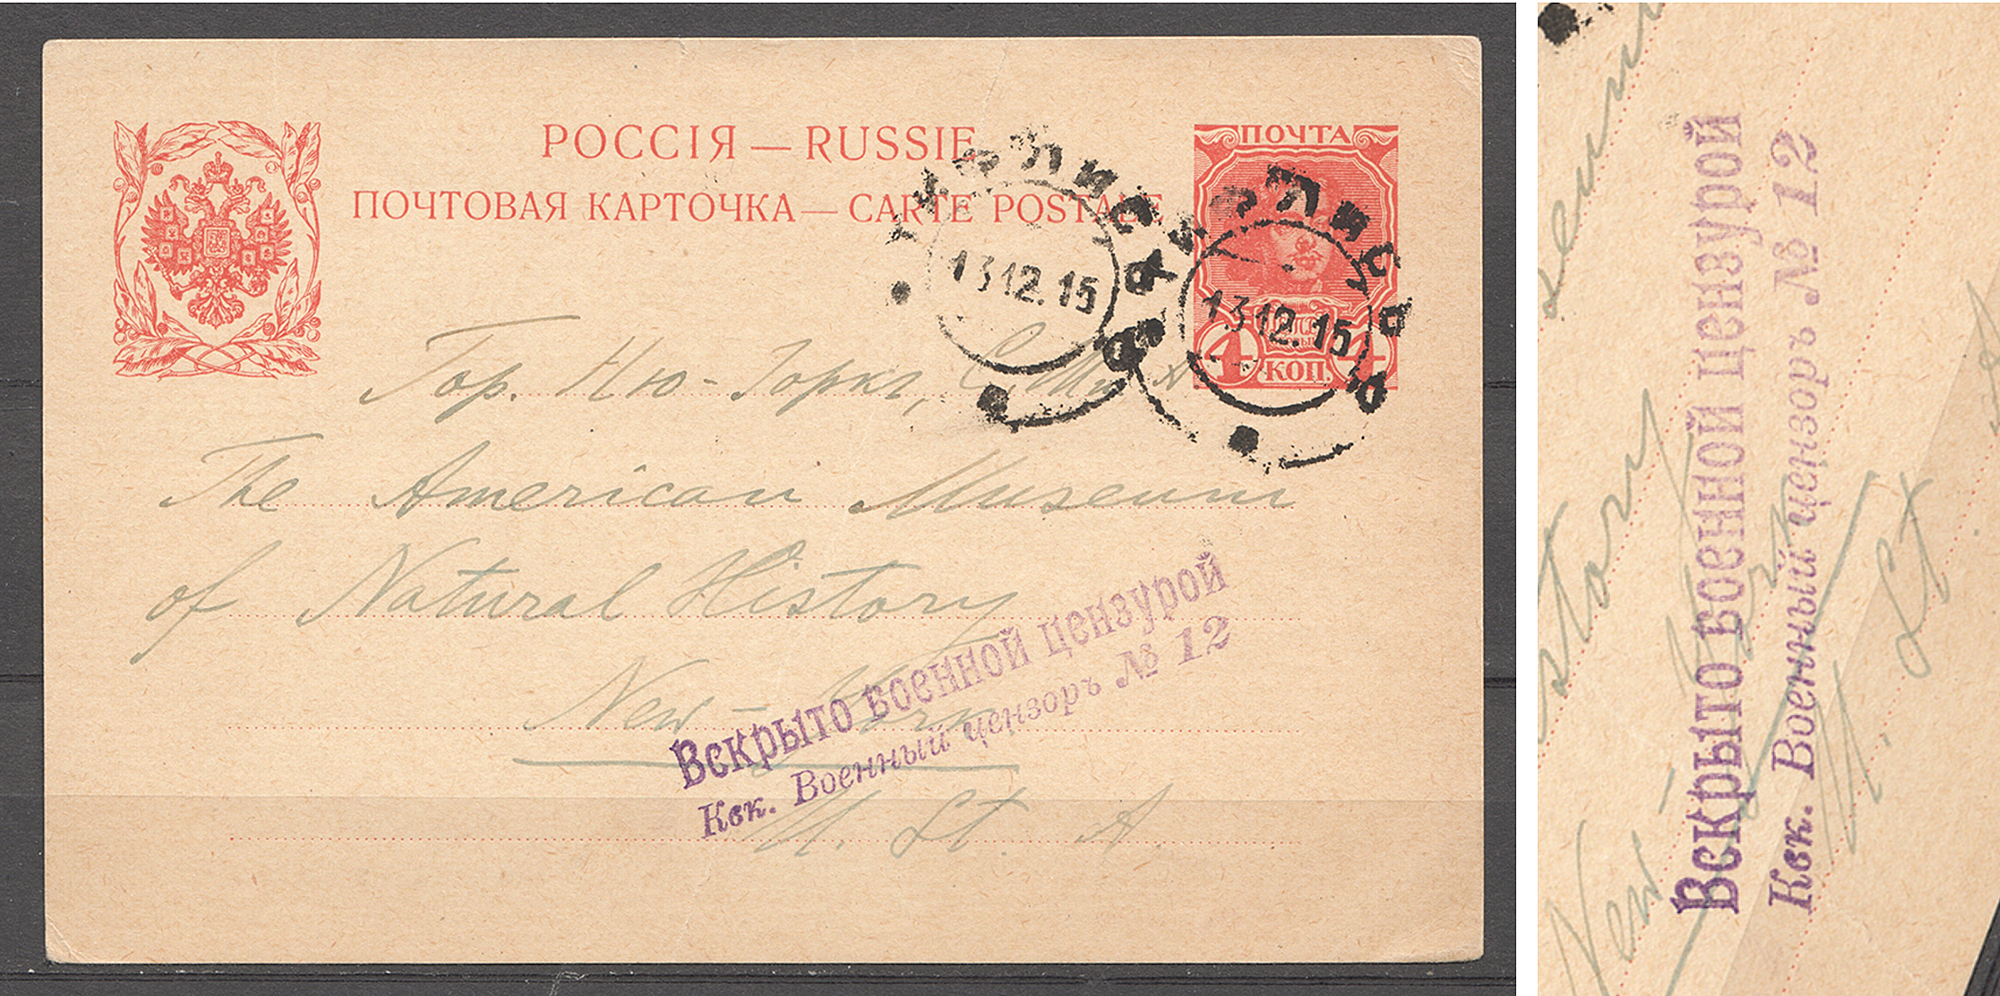 РОССІЯ — RUSSIE
ПОЧТОВАЯ КАРТОЧКА — CARTE POSTALE
ПОЧТА
4 КОП. 4
13 12. 15
13 12. 15
Гор. Нью-Іоркъ, С. Ш. А
The American Museum
of Natural History
New-York
U. St. A.
Вскрыто военной цензурой
Квк. Военный цензоръ № 12
story
New-York
U. St.
Вскрыто военной цензурой
Квк. Военный цензоръ № 12